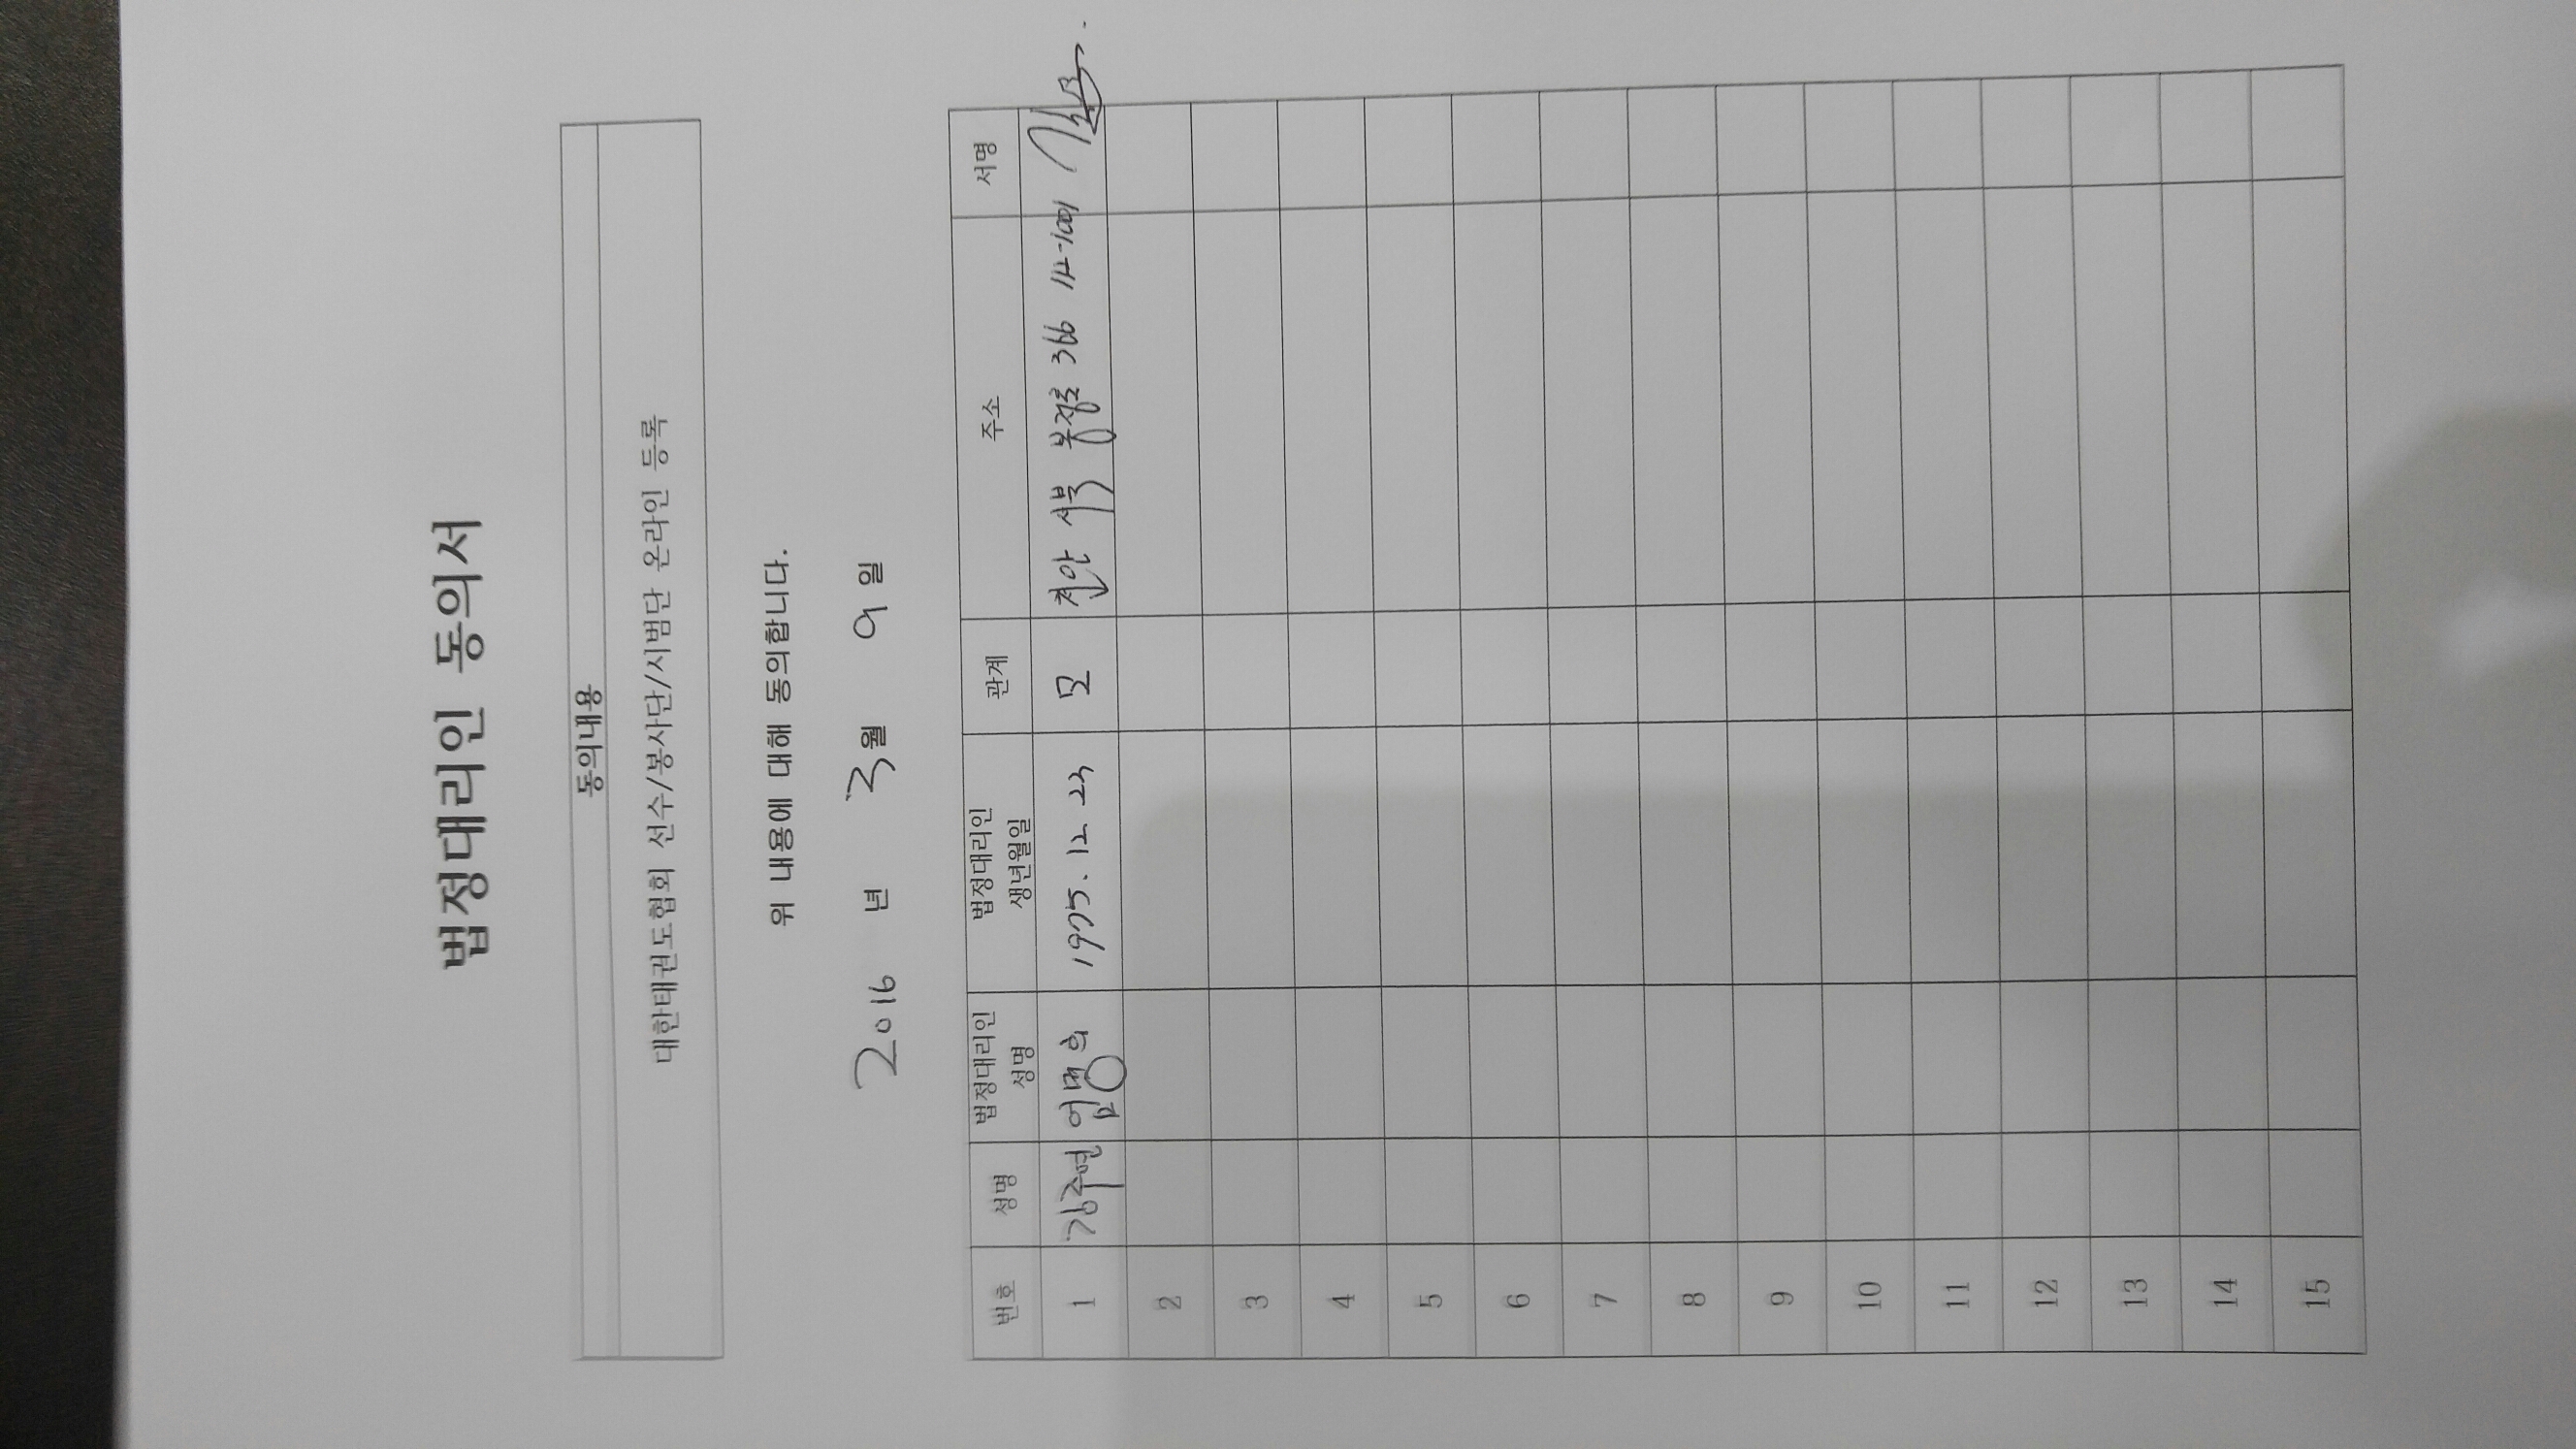 법정대리인 동의서
동의내용
대한태권도협회 선수/봉사단/시범단 온라인 등록
위 내용에 대해 동의합니다.
2016 년 3월 9일
번호 성명 법정대리인 성명 법정대리인 생년월일 관계 주소 서명
1 김주연 엄명희 1975. 12. 23 모 천안 서북 봉정로 366
2
3
4
5
6
7
8
9
10
11
12
13
14
15